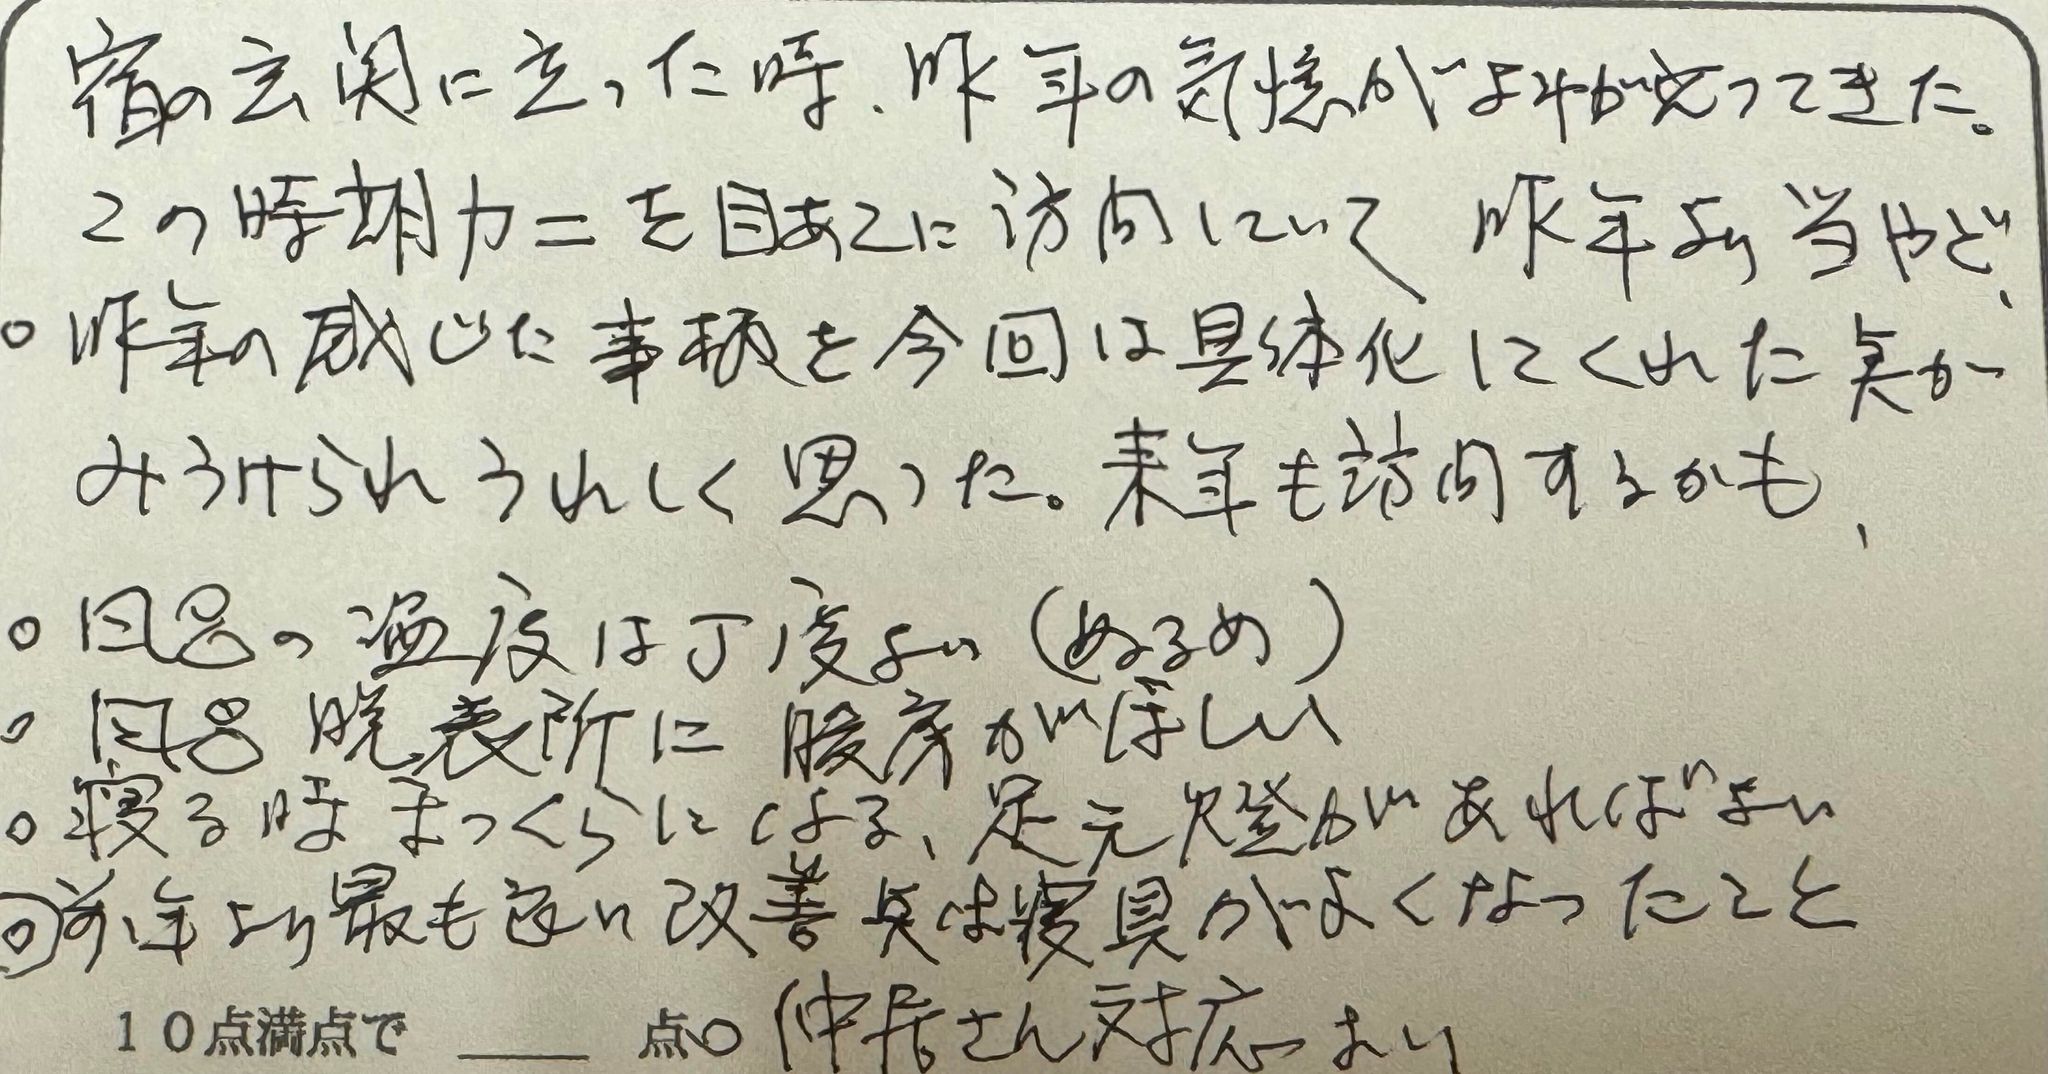 宿の玄関に立った時、昨年の記憶がよみが充ってきた。
この時期カニを目あてに訪問していて 昨年より当やど、
○ 昨年の感じた事柄を今回は具体化してくれた点が
みうけられうれしく思った。来年も訪問するかも、
○ 風呂の温度は丁度よい(ぬるめ)
○ 風呂脱衣所に暖房がほしい
○ 寝る時まっくらにはなる、足元燈があればよい
◎ 前年より最も良い改善点は寝具がよくなったこと
10点満点で ____ 点 ○ 仲居さん対応つよい